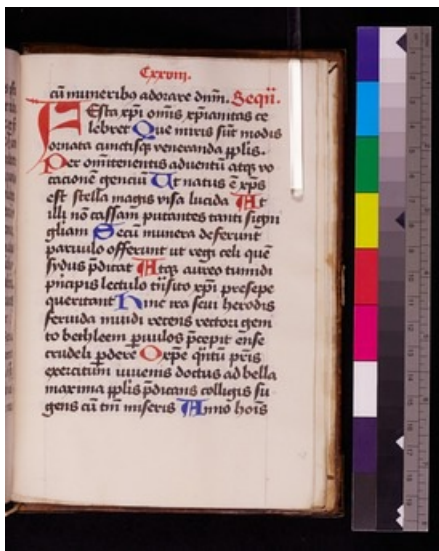 Cxxviii.
cū muneribꝫ adorare dnm̄. Seqū.
Festa xp̄i om̄is xp̄ianitas ce
lebret Que miris sūt modis
ornata cunctisqꝫ veneranda pplīs.
Per om̄itenentis aduentū atqꝫ vo
cacionē genciū Ut natus ē xp̄s
est stella magis visa lucida At
illi nō cassam putantes tanti signi
gliam Secū munera deferunt
paruulo offerunt ut regi celi quē
sydus p̄dicat Atqꝫ aureo tumidi
pncipis lectulo trāsito xp̄i presepe
queritant Hinc ira seui herodis
feruida inuidi recens rectori gem
to bethleem puulos p̄cepit ense
crudeli ꝑdere O xp̄e quātū pr̄is
exercitum iuuenis doctus ad bella
maxima pplīs p̄dicans colligis su
gens cū tm̄ miseris Anno hoīs